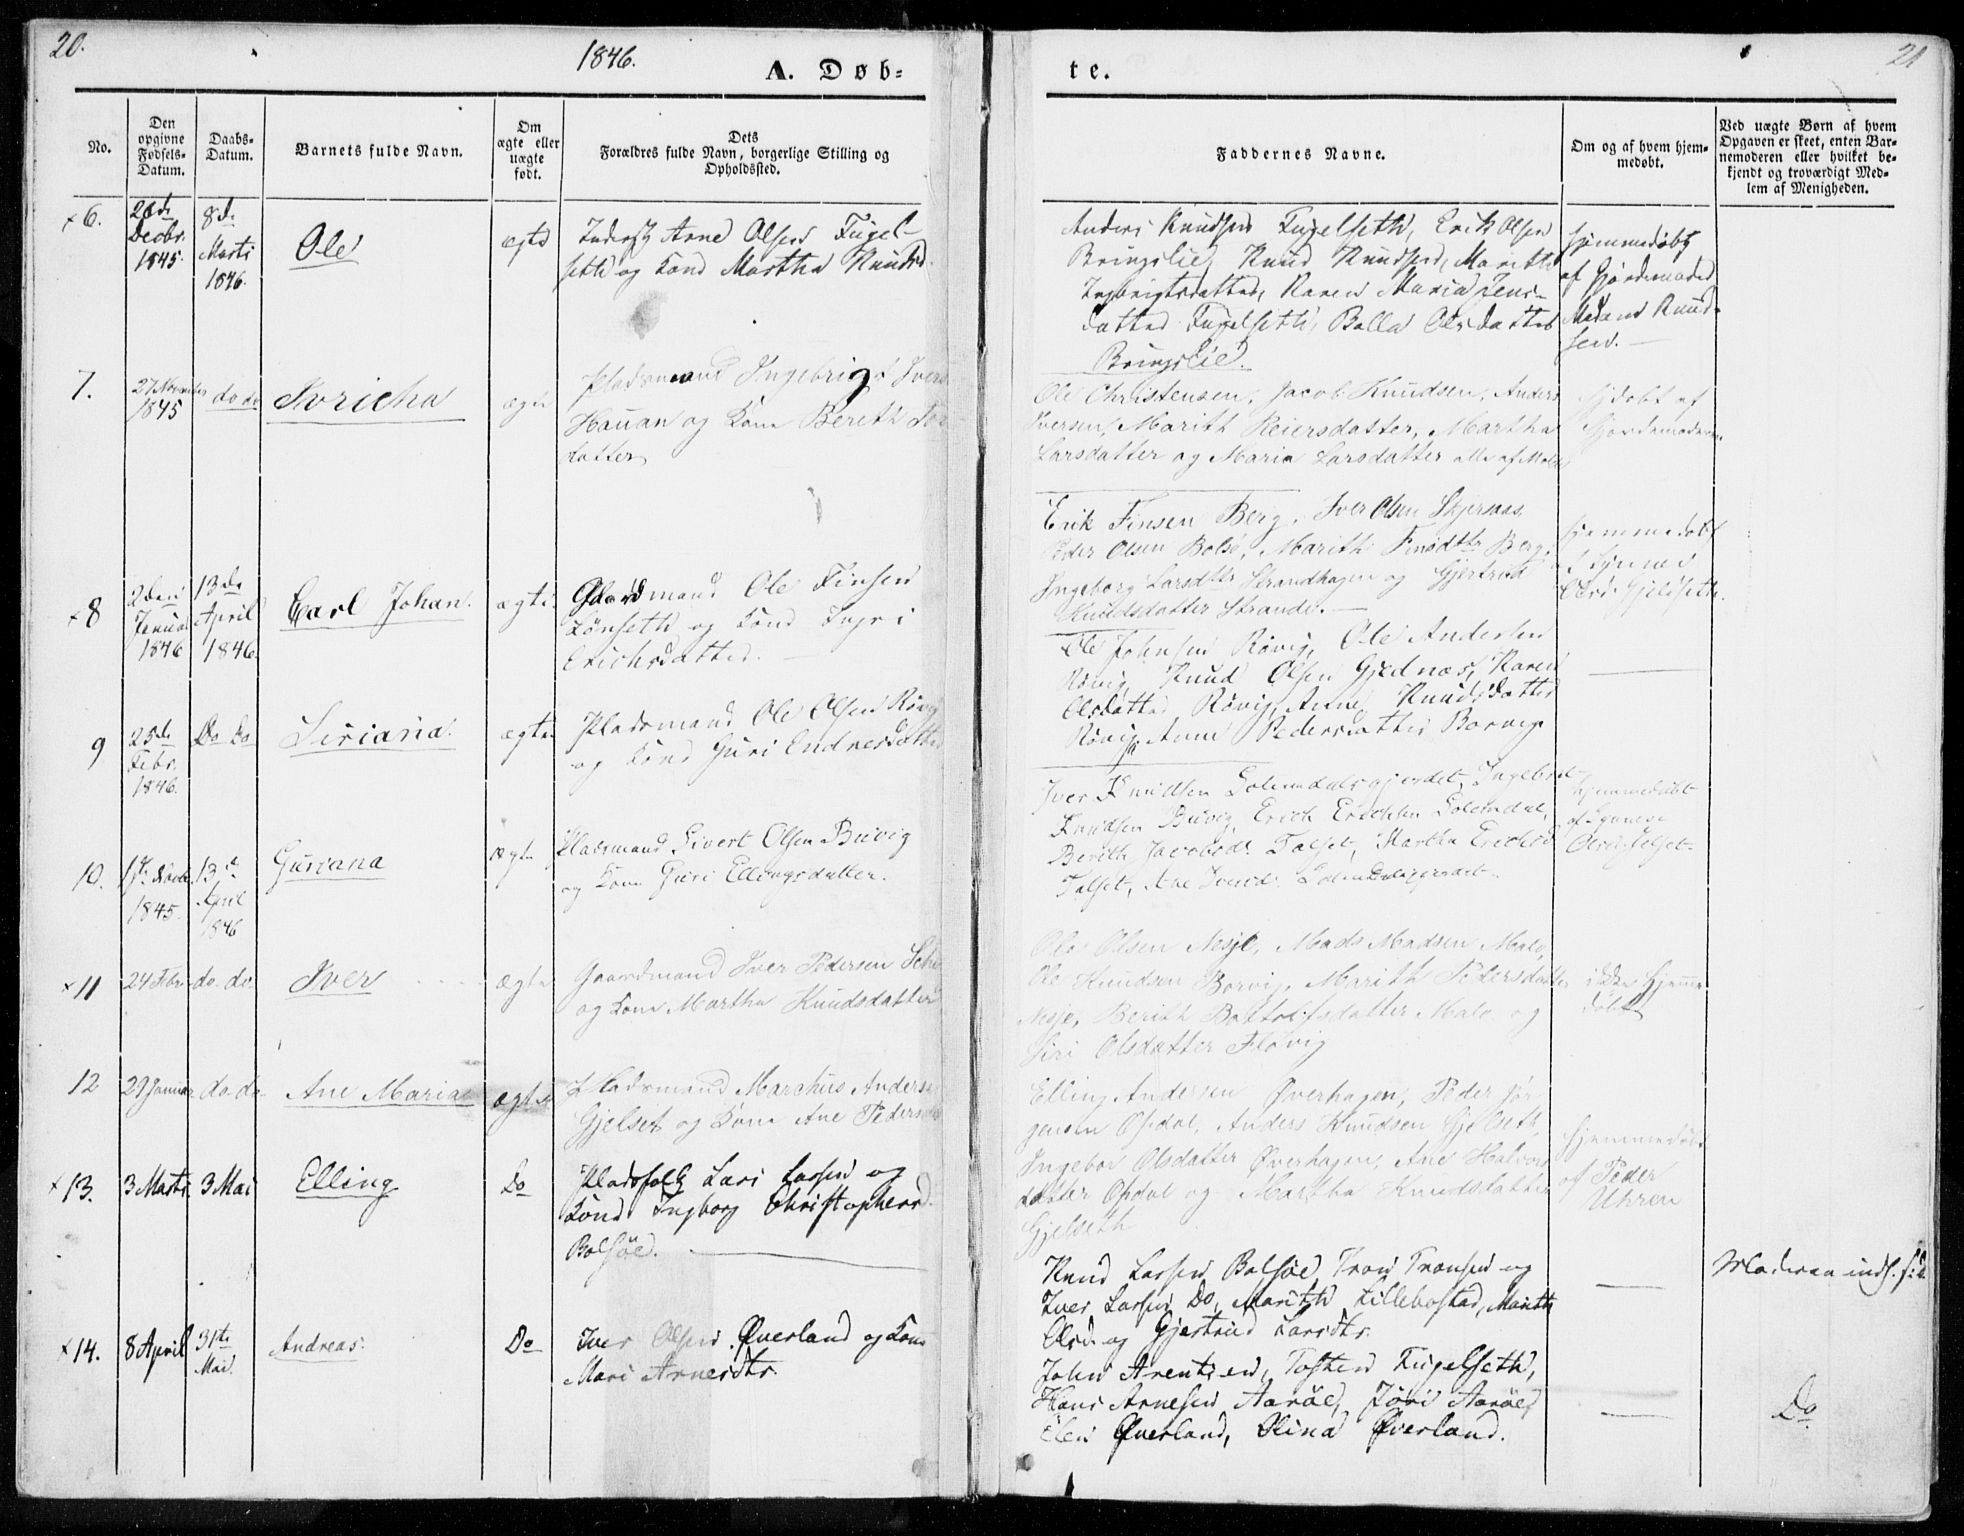 20.
1846.
A. Døb-
No.
Den opgivne Fødsels-Datum.
Daabs-Datum.
Barnets fulde Navn.
Om ægte eller uægte født.
Dets
Forældres fulde Navn, borgerlige Stilling og
Opholdssted.
6.
Decbr.
1845.
8de
Marts
1846.
Ole
ægte
Arne Olsen Fugel-
seth og Kone Martha Knudsd.
7.
27 November
1845
do do
ægte
Pladsmand Ingebrigt Ivers
Hauan og Kone Bereth
datter
8
2den
Januar
1846
13de
April
1846.
Carl Johan.
ægte
Gaardmand Ole Finsen
Lønseth og Kone Ingri
Erichsdatter.
9
25de
Febr.
1846.
Do Do
Siriana.
ægte
Pladsmand Ole Olsen Røvig
og Kone Guri Endresdatter
10.
1845.
13de
April
1846
Guriana
ægte
Pladsmand Sivert Olsen Buvig
og Kone Guri Ellingsdatter.
11
24 Febr
do. do.
Iver
ægte
Gaardmand Iver Pedersen
og Kone Martha Knudsdatter
12
29 Januar
do. do.
Ane Maria
ægte
Pladsmand Marchus Anders
Gjelset og Kone Ane Peders
13.
3 Marts
3 Mai
Elling
Do
Pladsfolk Lars Larsen og
Kone Ingborg Christophersd.
Bolsøe.
14.
8 April
31te
Mai.
Andreas.
Do
Iver Olsen Øverland og Kone
Mari Arnesdtr.
21
te.
Faddernes Navne.
Om og af hvem hjem-
medøbt.
Ved uægte Børn af hvem
Opgaven er skeet, enten Bar-
nemoderen eller hvilket be-
kjendt og troværdigt Med-
lem af Menigheden.
Anders Knudsen Fugelseth, Erik Olsen
Bringslie, Knud Knudsen, Marithe
Ingbrigtsdatter, Karen Maria Jens-
datter Fugelseth, Bolla Olsdatter
Bringslie.
Hjemmedøbt
af Gjordemoder
Madam Knud-
sen.
Ole Christensen, Jacob Knudsen, Anders
Iversen, Marith Reiersdatter, Martha
Larsdatter og Maria Larsdatter alle af Molde
hjdøbt af
Gjordemoderen
Erik Finsen Berg, Iver Olsen Skjersaas
Peder Olsen Bolsø, Marith Finsdtr Berg,
Ingeborg Larsdtr Strandhagen og Gjertrud
Knudsdatter Strande.
Hjemmedøbt
Olsd. Gjeldseth.
Ole Johnsen Røvig, Ole Andersen
Røvig, Knud Olsen Gjednæs, Karen
Olsdatter Røvig, Anne Knudsdatter
Røvig, Anne Pedersdatter Borvig
Iver Knudsen Solemdalsgjerdet, Ingebret
Knudsen Buvig, Erich Erichsen Solemdal,
Berith Jacobsd. Talset, Martha Erichsd
Talset, Ane Iversd. Solemdalsgjerdet.
hjemmedøbt
af
Ole Olsen Nesje, Mads Madsen Malo,
Ole Knudsen Borvig, Marith Pedersdatter
Nesje, Berith Bottolfsdatter Malo og
Siri Olsdatter Flovig
ikke hjemme
døbt
Elling Andersen Øverhagen, Peder Jør-
gensen Opdal, Anders Knudsen Gjelseth,
Ingebor Olsdatter Øverhagen, Ane Halvors
datter Opdal og Martha Knudsdatter
Gjelseth
Hjemmedøbt
af Peder
Uhren
Knud Larsen Bolsøe, Tron Tronsen og
Iver Larsen Do, Marith Lillebostad, Marith
Olsd. og Gjertrud Larsdtr.
John Arentsen, Tosten Fugelseth,
Hans Arnesen Aarøe, Jøri Aarøe,
Elen Øverland, Stina Øverland.
Do